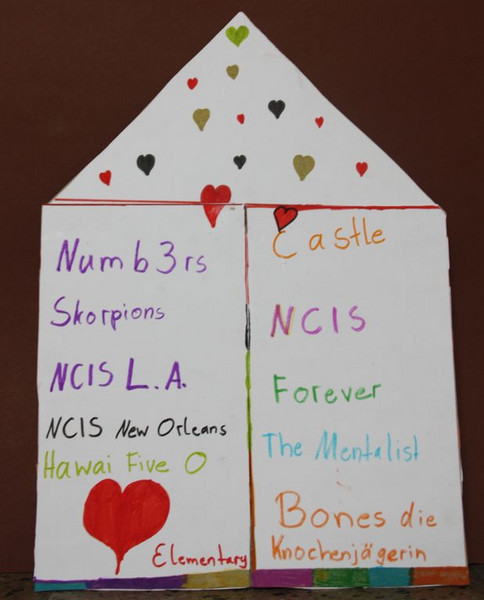 Numb3rs
Skorpions
NCIS L.A.
NCIS New Orleans
Hawai Five O
Elementary
Castle
NCIS
Forever
The Mentalist
Bones die
Knochenjägerin